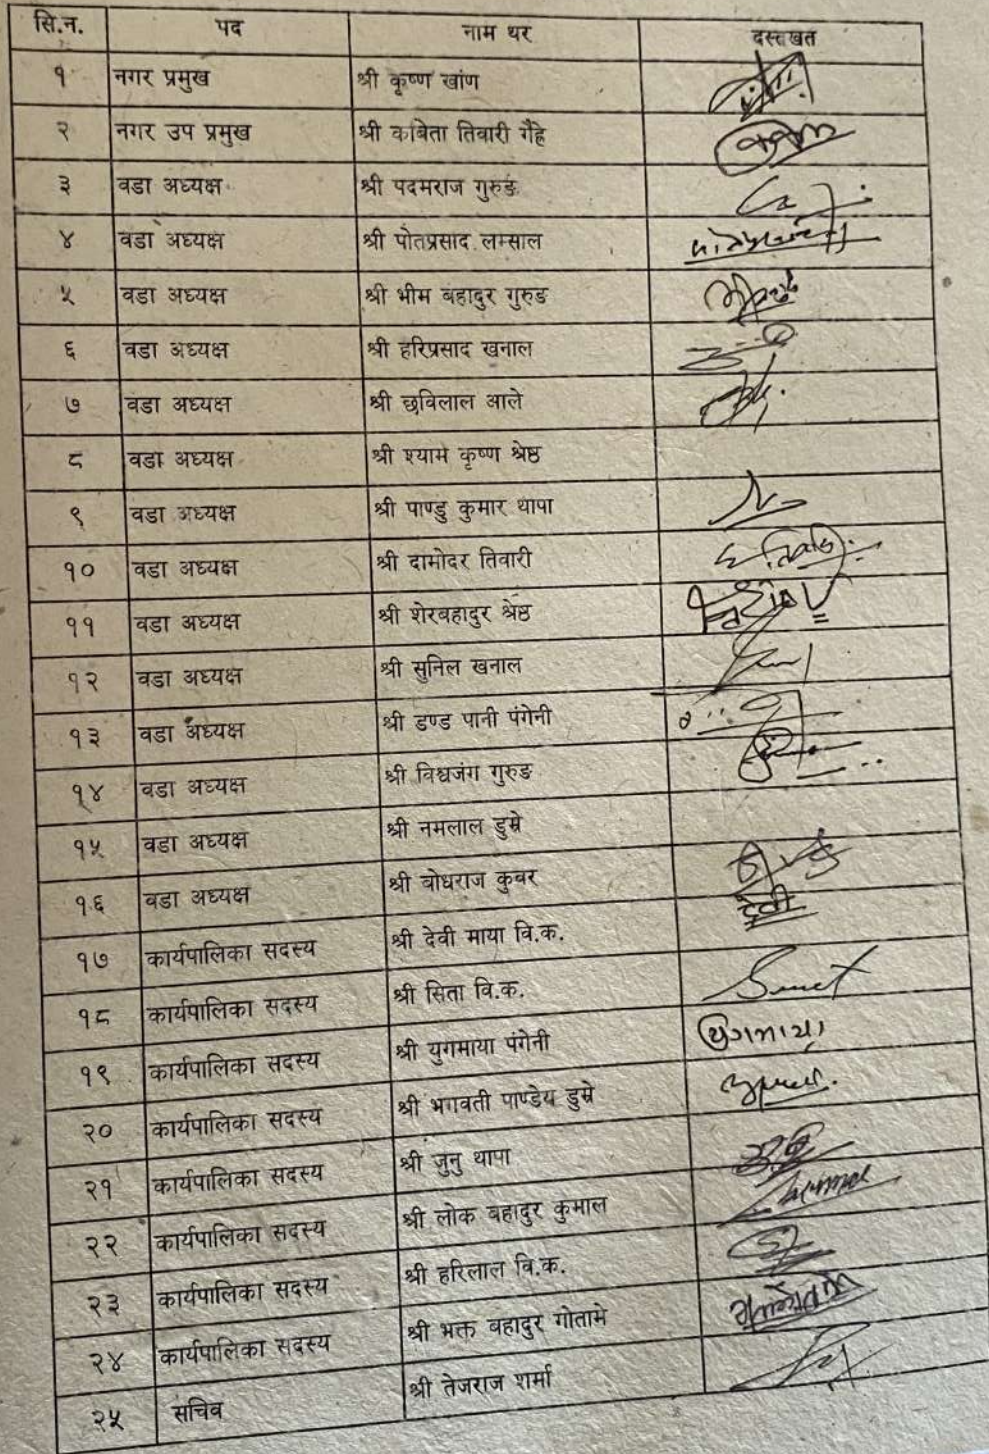 सि.न. पद नाम थर दस्तखत
१ नगर प्रमुख श्री कृष्ण खांण
२ नगर उप प्रमुख श्री कबिता तिवारी गैह्रे
३ वडा अध्यक्ष श्री पदमराज गुरुङ
४ वडा अध्यक्ष श्री पोतप्रसाद लम्साल
५ वडा अध्यक्ष श्री भीम बहादुर गुरुङ
६ वडा अध्यक्ष श्री हरिप्रसाद खनाल
७ वडा अध्यक्ष श्री छविलाल आले
८ वडा अध्यक्ष श्री श्याम कृष्ण श्रेष्ठ
९ वडा अध्यक्ष श्री पाण्डु कुमार थापा
१० वडा अध्यक्ष श्री दामोदर तिवारी
११ वडा अध्यक्ष श्री शेरबहादुर श्रेष्ठ
१२ वडा अध्यक्ष श्री सुनिल खनाल
१३ वडा अध्यक्ष श्री डण्ड पानी पंगेनी
१४ वडा अध्यक्ष श्री विश्वजंग गुरुङ
१५ वडा अध्यक्ष श्री नमलाल डुम्रे
१६ वडा अध्यक्ष श्री बोधराज कुवर
१७ कार्यपालिका सदस्य श्री देवी माया वि.क. देवी
१८ कार्यपालिका सदस्य श्री सिता वि.क.
१९ कार्यपालिका सदस्य श्री युगमाया पंगेनी युगमाया
२० कार्यपालिका सदस्य श्री भगवती पाण्डेय डुम्रे
२१ कार्यपालिका सदस्य श्री जुनु थापा
२२ कार्यपालिका सदस्य श्री लोक बहादुर कुमाल
२३ कार्यपालिका सदस्य श्री हरिलाल वि.क.
२४ कार्यपालिका सदस्य श्री भक्त बहादुर गोतामे
२५ सचिव श्री तेजराज शर्मा